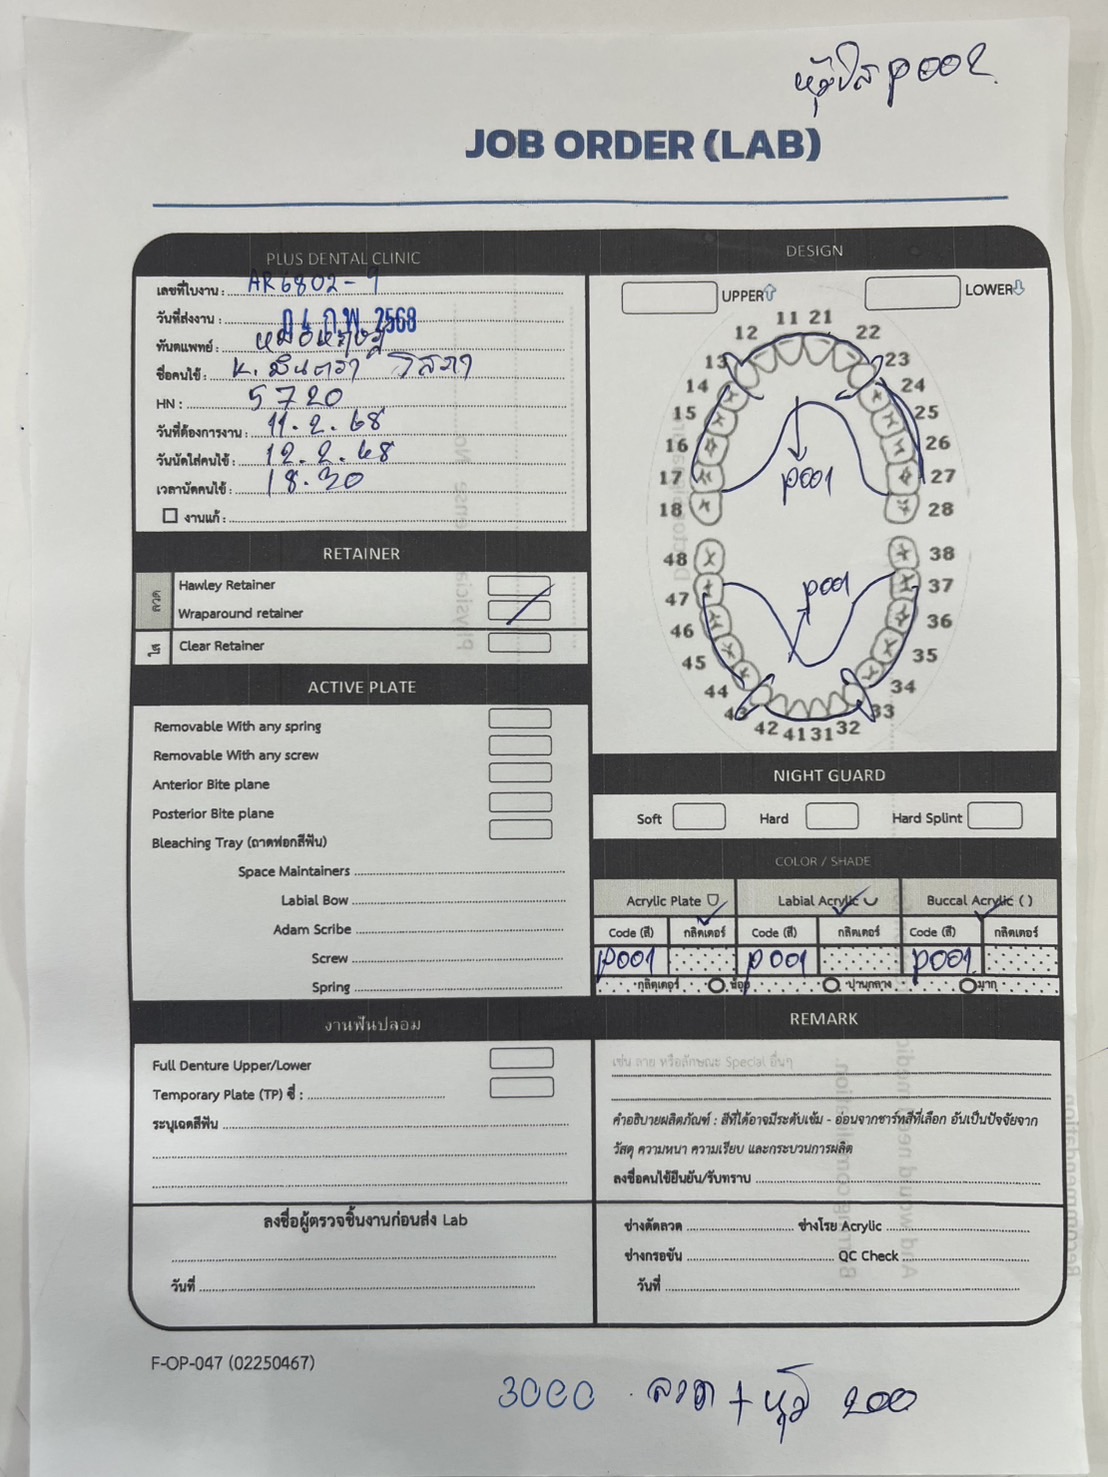 หุ้มใส P001
JOB ORDER (LAB)
PLUS DENTAL CLINIC
เลขที่ใบงาน : AR6802-9
วันที่ส่งงาน : 0 4 ก.พ. 2568
ทันตแพทย์ :
ชื่อคนไข้ : K.
HN : 5720
วันที่ต้องการงาน : 11.2.68
วันนัดใส่คนไข้ : 12.2.68
เวลานัดคนไข้ : 18.30
งานแก้ :
RETAINER
ลวด
Hawley Retainer
Wraparound retainer
ใส
Clear Retainer
ACTIVE PLATE
Removable With any spring
Removable With any screw
Anterior Bite plane
Posterior Bite plane
Bleaching Tray (ถาดฟอกสีฟัน)
Space Maintainers
Labial Bow
Adam Scribe
Screw
Spring
งานฟันปลอม
Full Denture Upper/Lower
Temporary Plate (TP) ซี่ :
ระบุเฉดสีฟัน
ลงชื่อผู้ตรวจชิ้นงานก่อนส่ง Lab
วันที่
DESIGN
UPPER LOWER
11 21
12 22
13 23
14 24
15 25
16 26
17 27
18 28
P001
48 38
47 37
46 36
45 35
44 34
43 33
42 41 31 32
P001
NIGHT GUARD
Soft Hard Hard Splint
COLOR / SHADE
Acrylic Plate Labial Acrylic Buccal Acrylic ( )
Code (สี) กลิตเตอร์ Code (สี) กลิตเตอร์ Code (สี) กลิตเตอร์
P001 P001 P001
กลิตเตอร์ น้อย ปานกลาง มาก
REMARK
เช่น ลาย หรือลักษณะ Special อื่นๆ
คำอธิบายผลิตภัณฑ์ : สีที่ได้อาจมีระดับเข้ม - อ่อนจากชาร์ทสีที่เลือก อันเป็นปัจจัยจาก
วัสดุ ความหนา ความเรียบ และกระบวนการผลิต
ลงชื่อคนไข้ยืนยัน/รับทราบ
ช่างดัดลวด ช่างโรย Acrylic
ช่างกรอขัน QC Check
วันที่
F-OP-047 (02250467)
3000 ลวด + หุ้ม 200